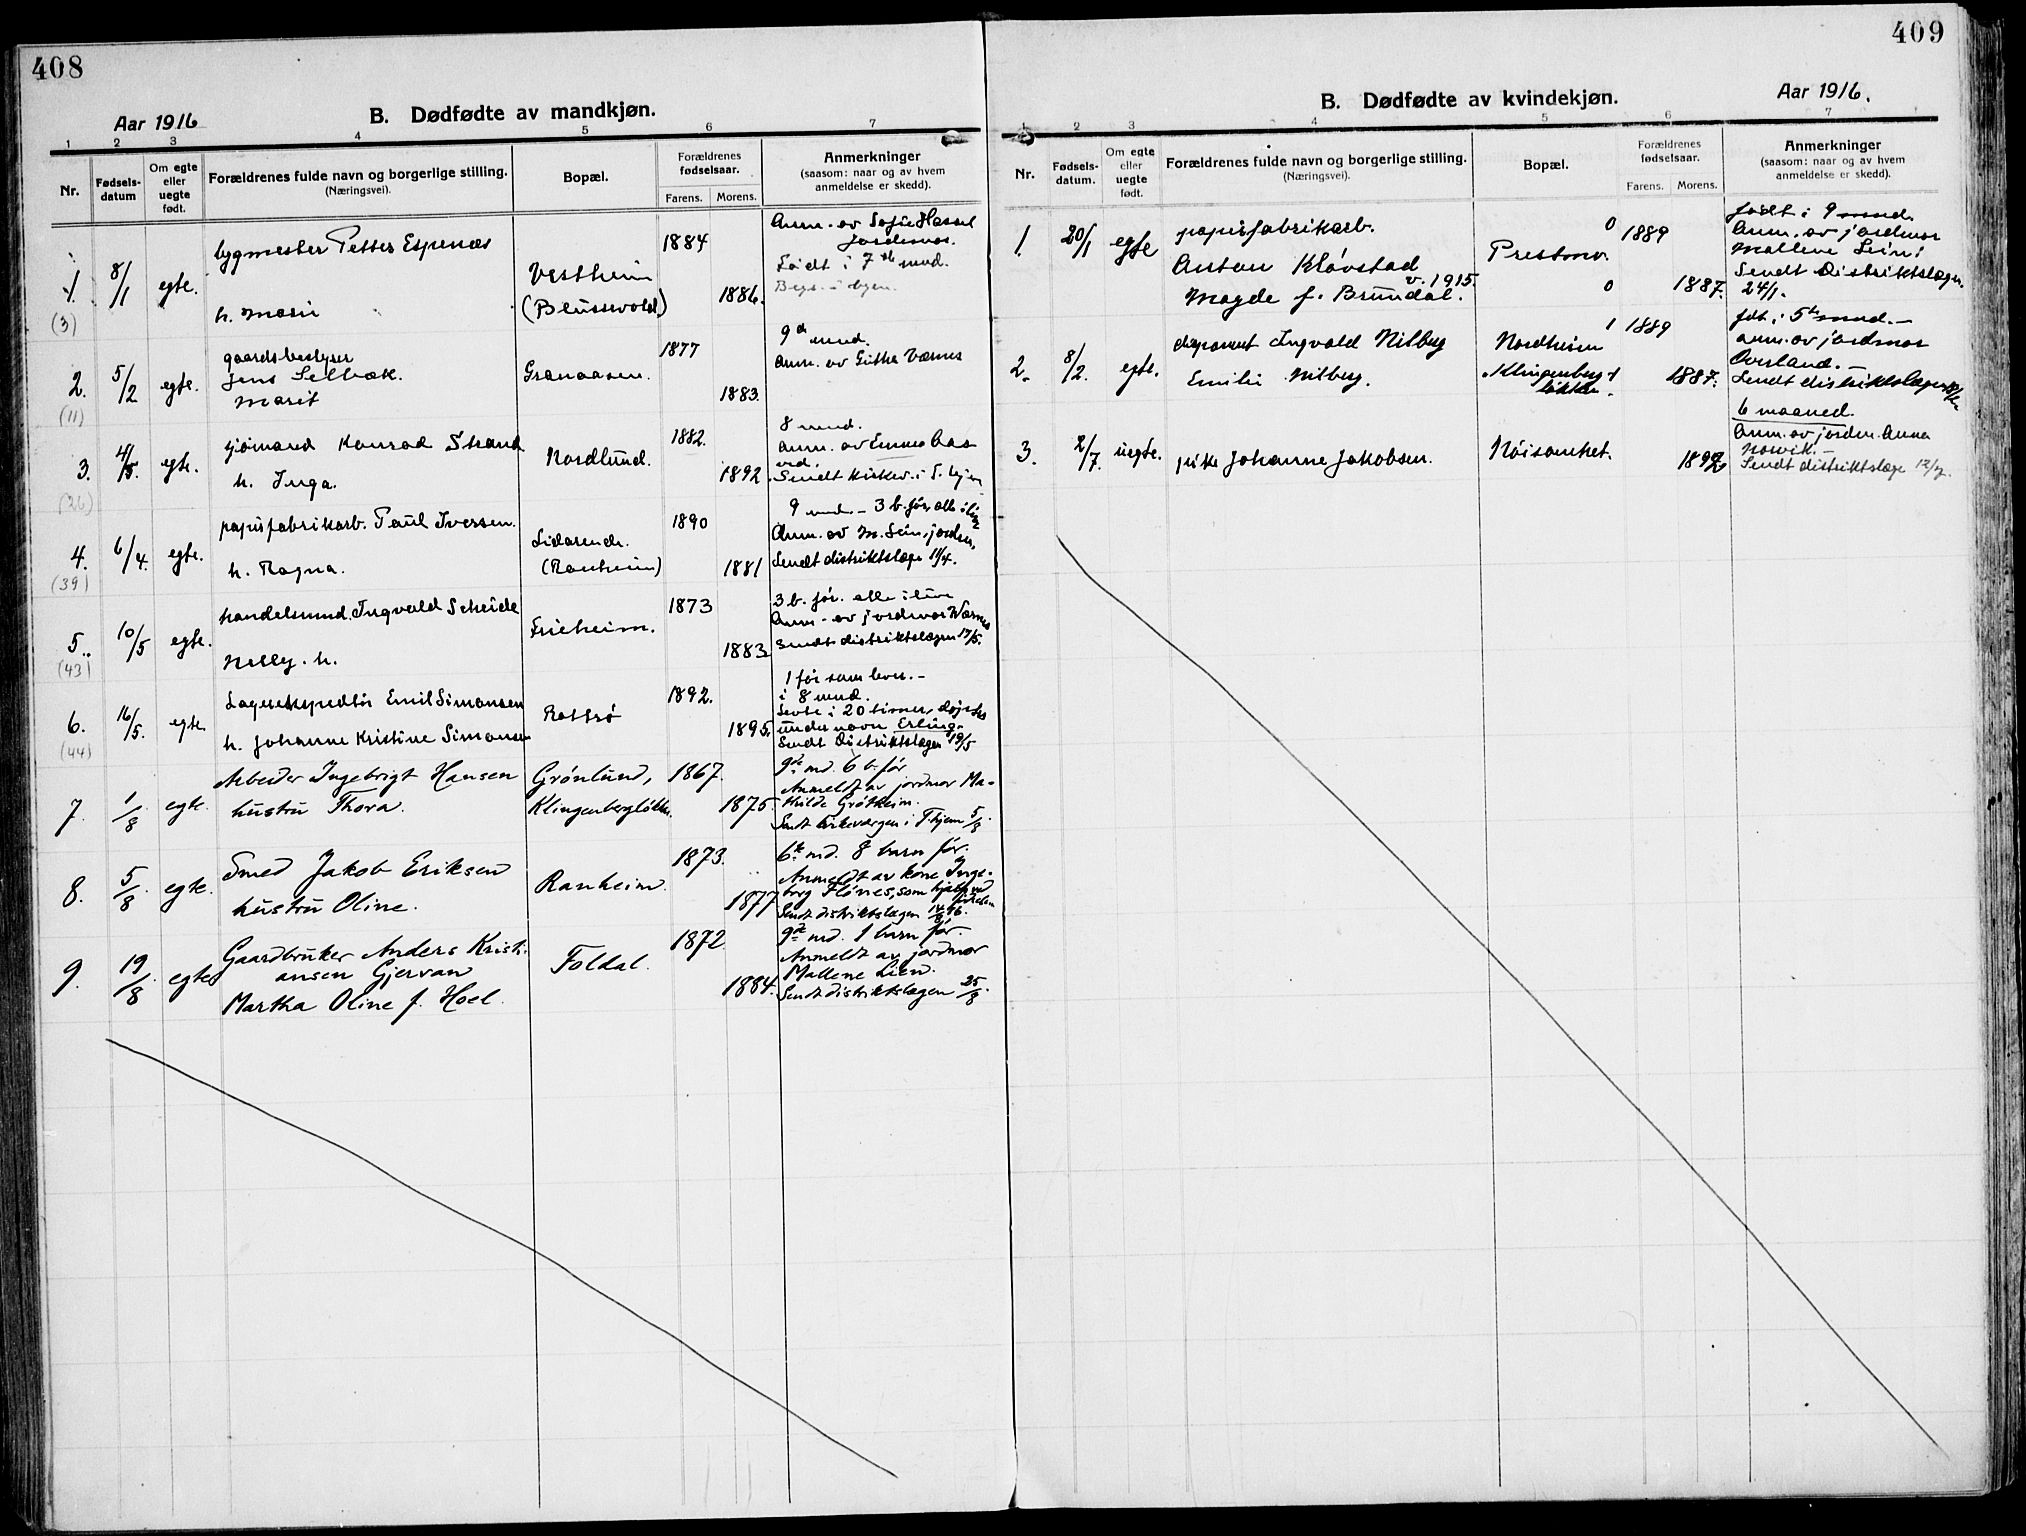 408
Aar 1916
B. Dødfødte av mandkjøn.
1 2 3 4 5 6 7
Nr.
Fødsels-datum
Om egte eller uegte født.
Forældrenes fulde navn og borgerlige stilling.
(Næringsvei).
Bopæl.
Forældrenes fødselsaar.
Farens. Morens.
Anmerkninger
(saasom: naar og av hvem anmeldelse er skedd).
1. 8/1 egte.
(3)
bygmester Petter Espenæs
h. Marie
Vestheim
(Blussuvold)
1884
1886.
Anm. av Sofie Hassel
Jordmor.
Født i 7de mnd.
2. 5/2 egte.
(11)
gaardsbestyrer
Jens Selbæk.
Marit
Granaasen.
1877
1883.
9d mnd.
Anm. av Githa Værnes
3. 4/5. egte.
(26)
sjømand Konrad Strand
h. Inga.
Nordlund.
1882.
1892.
8 mnd.
Anm. av Emma Aas
Sendt kirkev. i T.hjem
4. 6/4. egte.
(39)
papirfabrikarb. Paul Iversen.
h. Ragna.
Lidarende.
(Ranheim)
1890
1881
9 mnd. – 3 b. før, alle i live
Anm. av M. Lein, jordm,
Sendt distriktslæge 11/4.
5. 10/5 egte.
(43)
handelsmand. Ingvald Scheide
Nelly. h.
Frieheim.
1873
1883
3 b. før. alle i live
Anm. av jordmor Værnes
Sendt distriktslægen 17/5.
6. 16/5. egte.
(44)
Lagerekspeditør Emil Simonsen
h. Johanne Kristine Simonsen
Rotsø
1892.
1895.
1 før som lever. –
i 8 mnd.
Levte i 20 timer, døptes
under navn Erling.
Sendt Distriktslægen 19/5
7. 1/8 egte.
Arbeider Ingebrigt Hansen
hustru Thora.
Grønlund,
Klingenbergløkka.
1867.
1875.
9de md. 6 b. før
Anmeldt av jordmor Ma-
thilde Grøtheim.
Sendt kirkeværgen i Thjem 5/8.
8. 5/8. egte.
Smed Jakob Eriksen
hustru Oline.
Ranheim.
1873.
1877
6te md. 8 barn før.
Anmeldt av kone Inge-
borg Flønes, som hjalp ved
fødselen
Sendt distriktslægen 14/8 16.
9. 19/8 egte
Gaardbruker Anders Kristi-
ansen Gjervan
Martha Oline f. Hoel.
Foldal.
1872.
1884.
9de md. 1 barn før.
Anmeldt av jordmor
Mallene Lien.
Sendt distriktslægen 25/8.
409
Aar 1916.
B. Dødfødte av kvindekjøn.
1 2 3 4 5 6 7
Nr.
Fødsels-datum.
Om egte eller uegte født.
Forældrenes fulde navn og borgerlige stilling.
(Næringsvei).
Bopæl.
Forældrenes fødselsaar.
Farens. Morens.
Anmerkninger
(saasom: naar og av hvem anmeldelse er skedd).
1. 20/1 egte
papirfabrikarb.
Anton Kløvstad
v. 1915.
Magde f. Brundal.
Prestmo.
0 1889
0 1887.
født i 9 mnd.
Anm. av jordmor
Mallene Lein;
Sendt Distriktslægen.
24/1.
2. 8/2. egte.
Ingvald Nilberg
Emilie Nilberg.
Nordheim
Klingenberg-
løkken.
1 1889
1887.
født i 5te mnd. –
anm. av jordmor
Overland. –
Sendt distriktslægen
3. 2/7. uegte.
pike Johanne Jakobsen.
Nøisomhet.
1892
6 maaned.
Anm. av jordm. Anna
Norvik. –
Sendt distriktslæge 12/7.